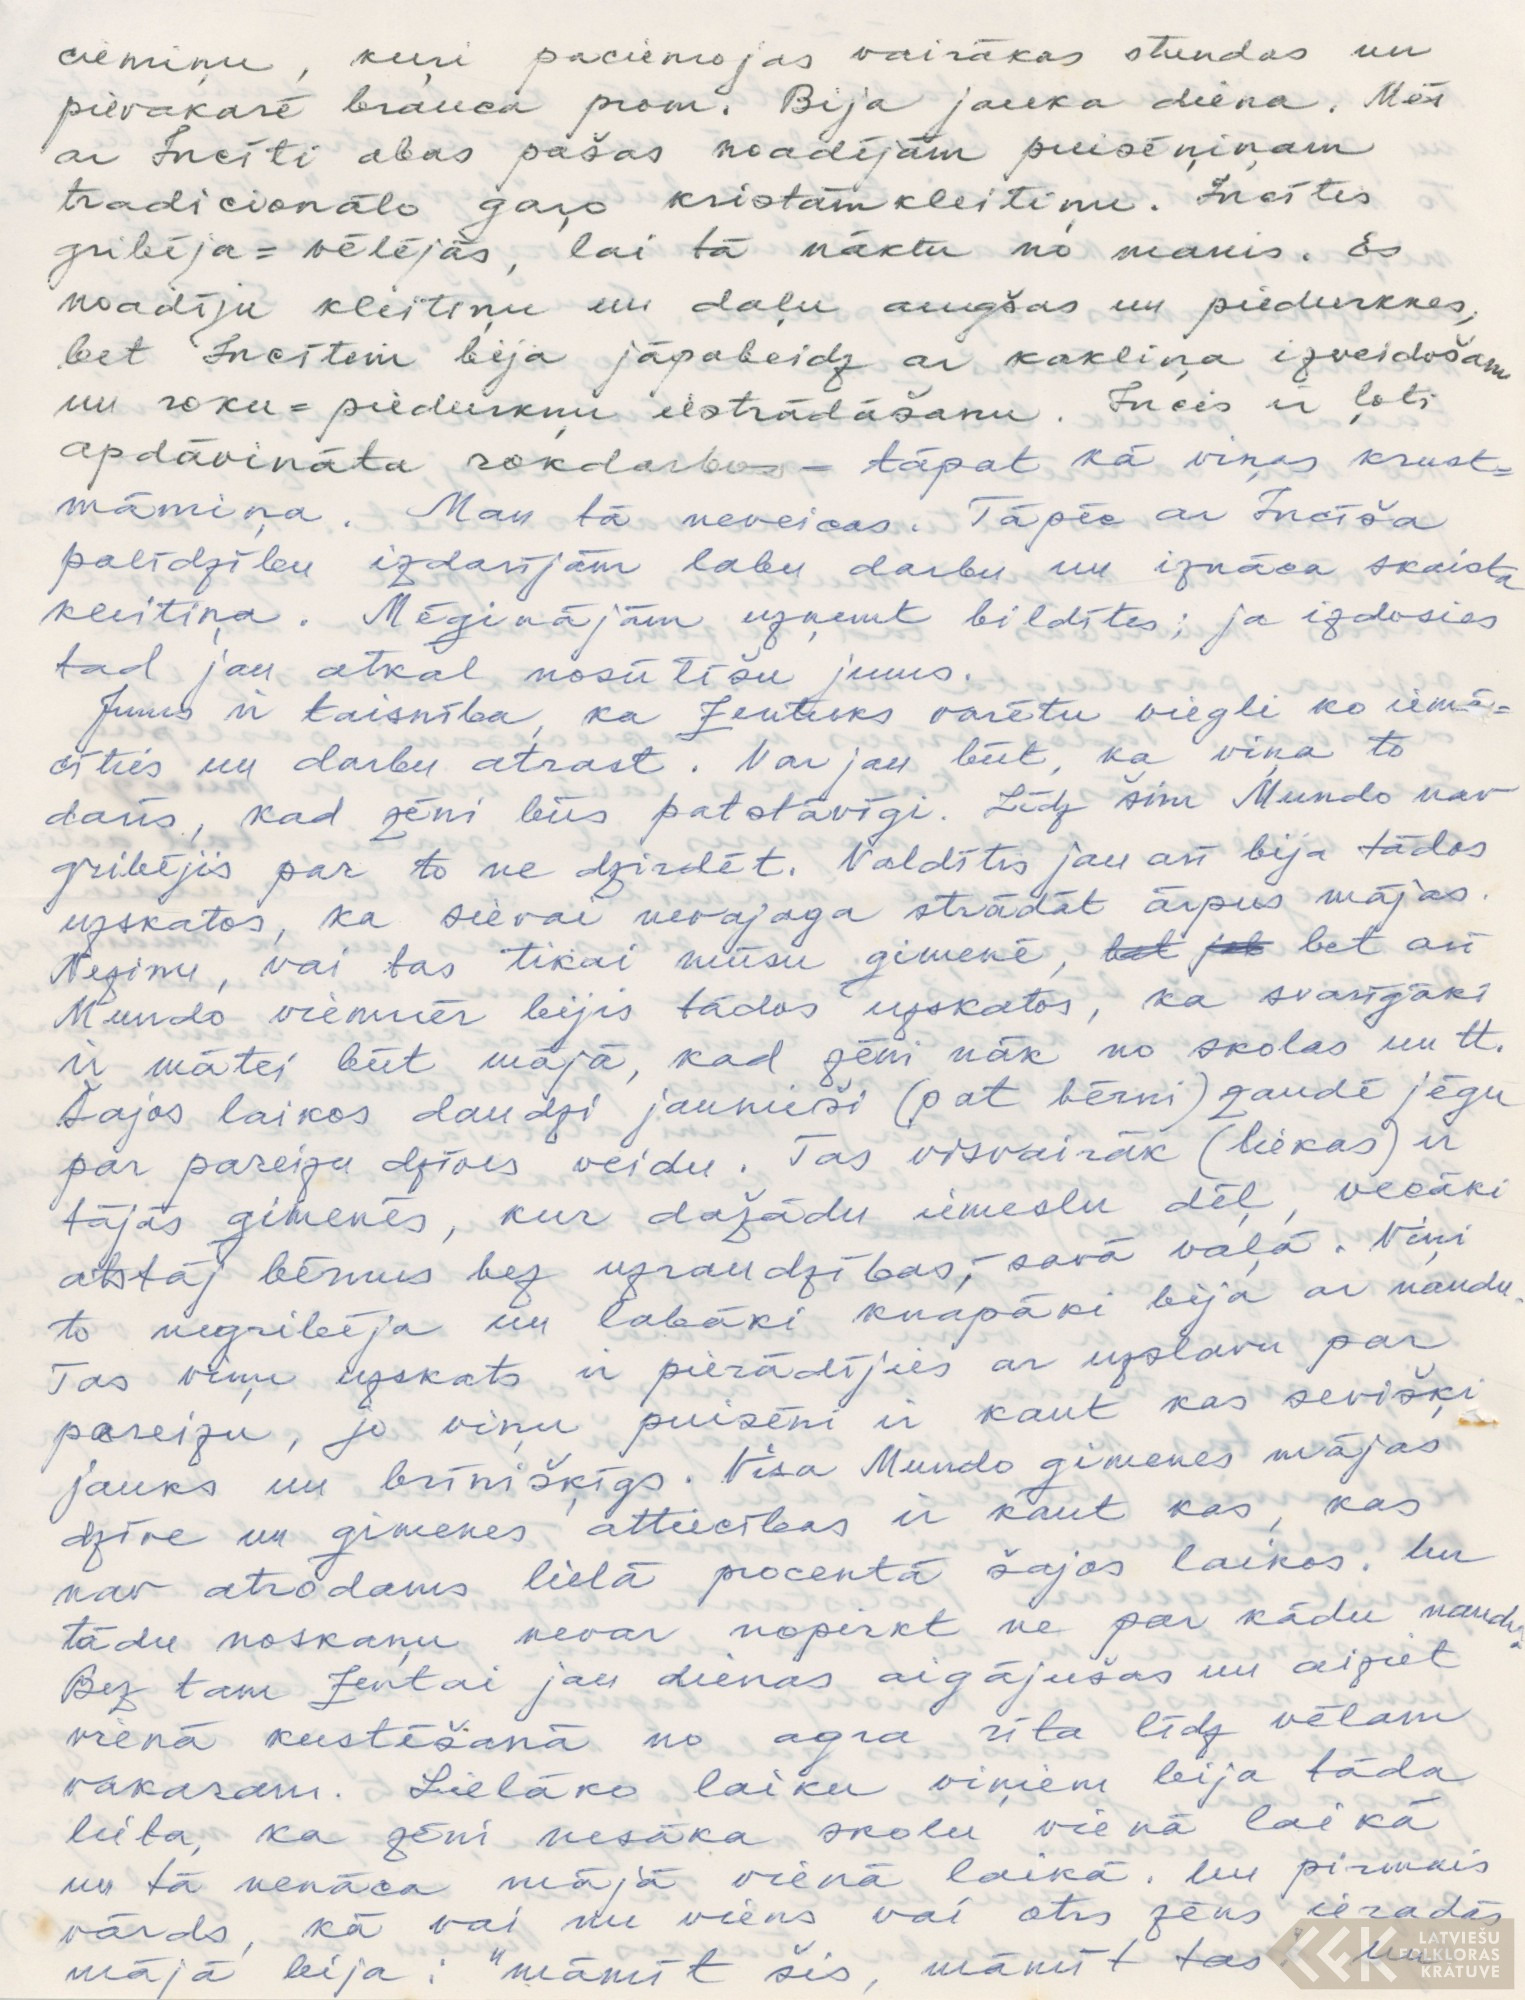 ciemiņu, kuŗi paciemojas vairākas stundas un
pievakarē brauca prom. Bija jauka diena. Mēs
ar Incīti abas pašas noadījām puisēniņam
tradicionālo gaŗo kristāmkleitiņu. Incītes
gribēja = vēlējās, lai tā nāktu no manis. Es
noadīju kleitiņu un daļu augšas un piedurknes,
bet Incītem bija jāpabeidz ar kakliņa izveidošanu
un roku = piedurkņu iestrādāšanu. Incis ir ļoti
apdāvināta rokdarbos - tāpat kā viņas krust=
māmiņa. Man tā neveicas. Tāpēc ar Incīša
palīdzību izdarījām labu darbu un iznāca skaista
kleitiņa. Mēģinājām uzņemt bildītes; ja izdosies
tad jau atkal nosūtīšu jums.
Jums ir taisnība, ka Zentuks varētu viegli ko iemā=
cīties un darbu atrast. Var jau būt, ka viņa to
darīs, kad zēni būs patstāvīgi. Līdz šim Mundo nav
gribējis par to ne dzirdēt. Valdītis jau arī bija tādos
uzskatos, ka sievai nevajaga strādāt ārpus mājas.
Nezinu, vai tas tikai mūsu ģimenē, bet arī
Mundo vienmēr bijis tādos uzskatos, ka svarīgāki
ir mātei būt mājā, kad zēni nāk no skolas un tt.
Šajos laikos daudzi jaunieši (pat bērni) zaudē jēgu
par pareizu dzīves veidu. Tas visvairāk (liekas) ir
tājās ģimenēs, kur dažādu iemeslu dēļ, vecāki
atstāj bērnus bez uzraudzības, - savā vaļā. Viņi
to negribēja un labāki knapāki bija ar naudu.
Tas viņu uzskats ir pierādījies ar uzslavu par
pareizu, jo viņu puisēni ir kaut kas sevišķi
jauks un brīnišķīgs. Visa Mundo ģimenes mājas
dzīve un ģimenes attiecības ir kaut kas, kas
nav atrodams lielā procentā šajos laikos. Un
tādu noskaņu nevar nopirkt ne par kādu naudu.
Bez tam Zentai jau dienas aigājušas un aiziet
vienā kustēšanā no agra rīta līdz vēlam
vakaram. Lielāko laiku viņiem bija tāda
lieta, ka zēni nesāka skolu vienā laikā
un tā nenāca mājā vienā laikā. Un pirmais
vārds, kā vai nu viens vai otrs zēns ieradās
mājā bija: "māmīt šis, māmīt tas". Un
LATVIEŠU
FOLKLORAS
KRĀTUVE